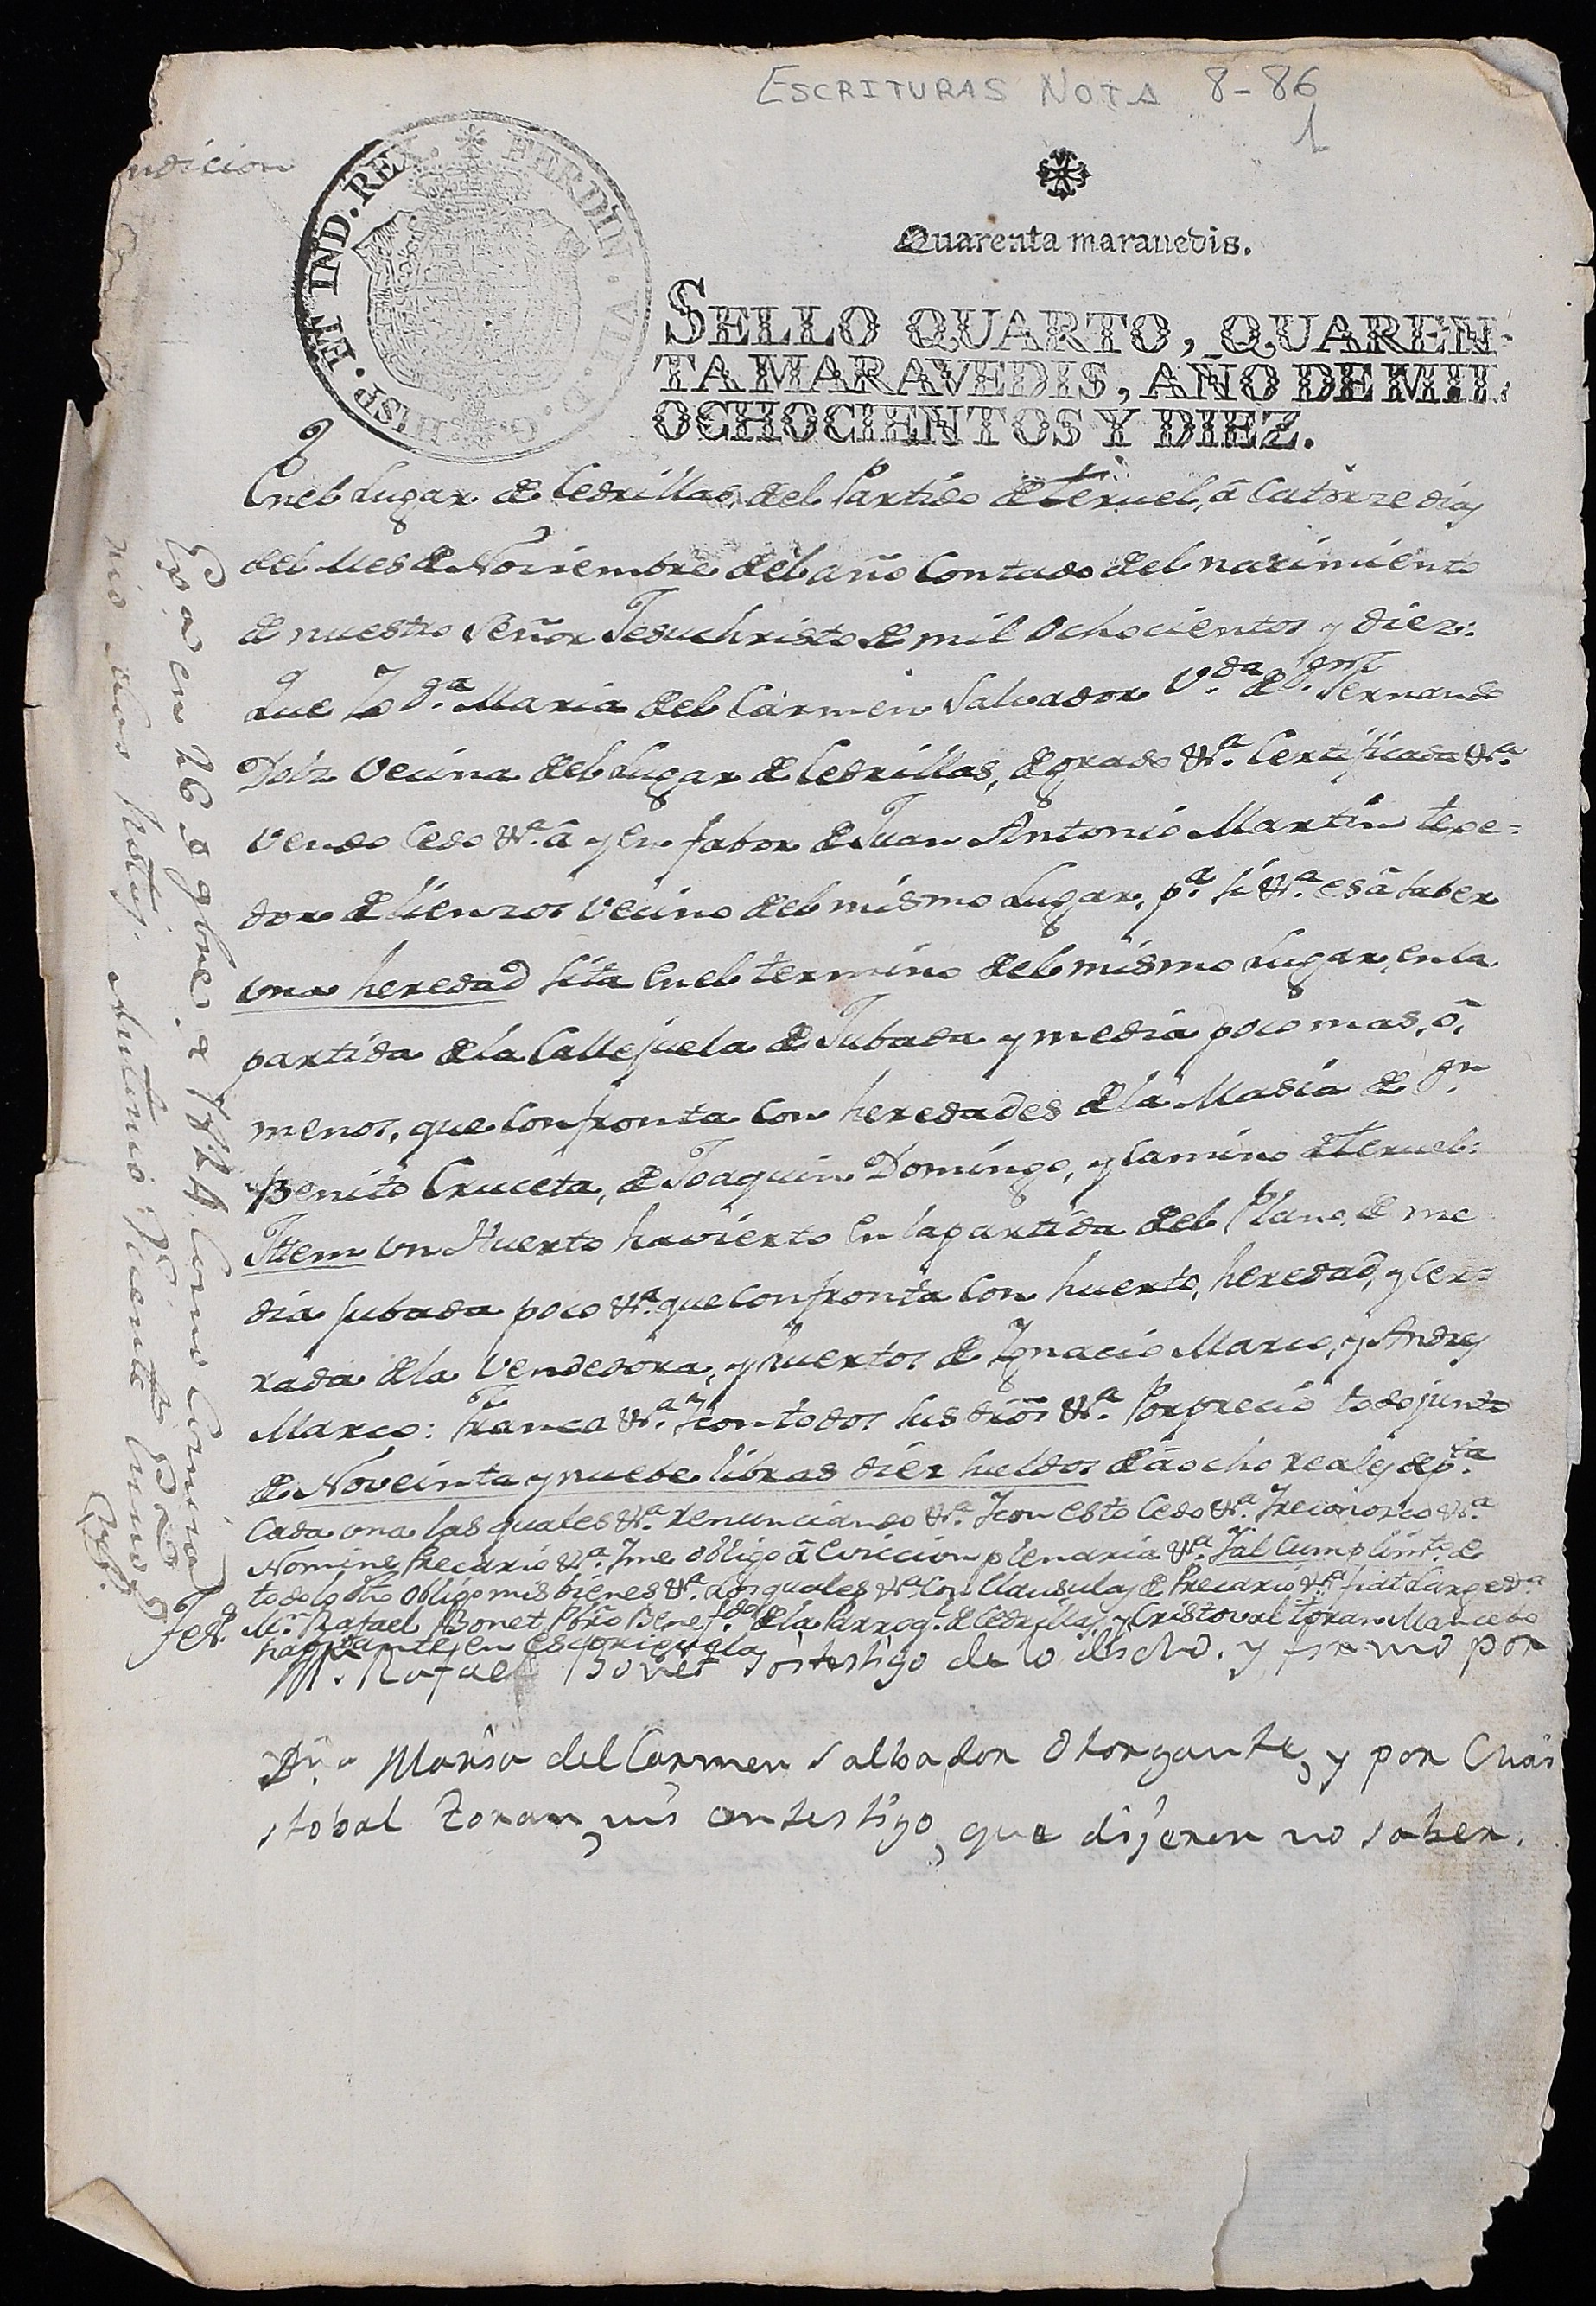 ESCRITURAS NOTA 8-86
1
ndicion
FERDIN. VII. D. G. HISP. ET IND. REX.
Quarenta maravedis.
SELLO QUARTO, QUAREN-
TA MARAVEDIS, AÑO DE MIL
OCHOCIENTOS Y DIEZ.
En el Lugar de Cedrillas, del Partido de Teruel, â Catorze dias
del Mes de Noviembre del año Contado del nacimiento
de nuestro Señor Jesuchristo de mil ochocientos y diez:
Que Yo D.ª Maria del Carmen Salvador V.da de D.n Fernando
Dolz Vecina del Lugar de Cedrillas, de grado &.ª Certificada &.ª
Vendo Cedo &.ª â y en fabor de Juan Antonio Martin texe=
dor de lienzos Vecino del mismo Lugar, p.ª si &.ª es â saber
Una heredad sita en el termino del mismo Lugar, en la
partida de la Callejuela de Jubada y media poco mas, ô,
menos, que Confronta Con heredades de la Masia de D.n
Benito Cruceta, de Joaquin Domingo, y Camino de Teruel:
Ittem un Huerto havierto en la partida del Plano, de me
dia jubada poco &.ª que Confronta Con huerto, heredad, y Cer=
rada de la Vendedora, y huertos de Ygnacio Marco, y Andres
Marco: Franca &.ª Y con todos sus dr̃os &.ª Por precio todo junto
de Noveinta y nuebe libras diez sueldos de â ocho reales de p.ta
Cada una las quales &.ª renunciando &.ª Y con esto Cedo &.ª Y reconozco &.ª
Nomine Precario &.ª Y me obligo â Eviccion plenaria &.ª Y al Cumplim.to de
todo lo dho obligo mis bienes &.ª Los quales &.ª Con Clausulas de Precario &.ª fiat Large &.ª
Tes. M.n Rafael Bonet Pbro Benef.do de la Parroq.l de Cedrillas, y Cristoval Toran Mancebo
havitante en Escorihuela
M.n Rafael Bonet soi testigo de lo dicho. y firmo por
Dña Maria del Carmen Salbador Otorgante, y por Chris
stobal Zoran, mi contestigo, que dijeron no saber.
Exª en 26 de 9bre. a 1824
nio dos